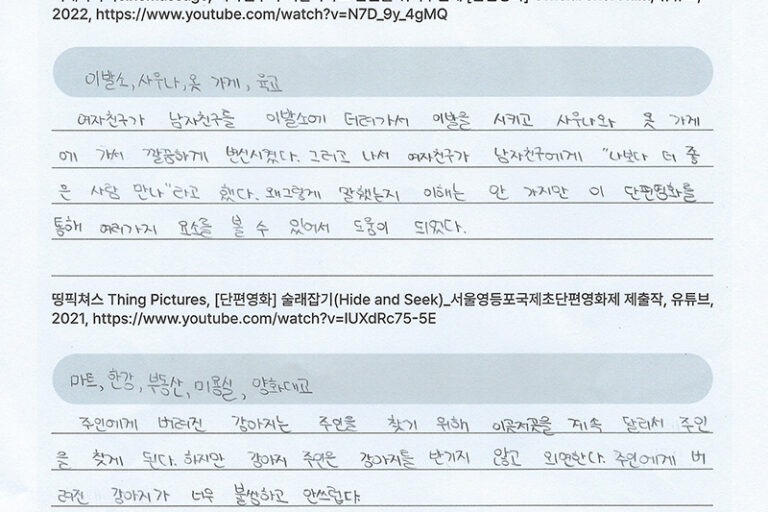 2022, https://www.youtube.com/watch?v=N7D_9y_4gMQ
이발소, 사우나, 옷 가게, 육교
여자친구가 남자친구를 이발소에 데려가서 이발을 시키고 사우나와 옷 가게
에 가서 깔끔하게 변신시켰다. 그러고 나서 여자친구가 남자친구에게 "나보다 더 좋
은 사람 만나"라고 했다. 왜그렇게 말했는지 이해는 안 가지만 이 단편영화를
통해 여러가지 요소를 볼 수 있어서 도움이 되었다.
띵픽쳐스 Thing Pictures, [단편영화] 술래잡기(Hide and Seek)_서울영등포국제초단편영화제 제출작, 유튜브,
2021, https://www.youtube.com/watch?v=IUXdRc75-5E
마트, 한강, 부동산, 미용실, 양화대교
주인에게 버려진 강아지는 주인을 찾기 위해 이곳저곳을 계속 달려서 주인
을 찾게 된다. 하지만 강아지 주인은 강아지를 반기지 않고 외면한다. 주인에게 버
려진 강아지가 너무 불쌍하고 안쓰럽다